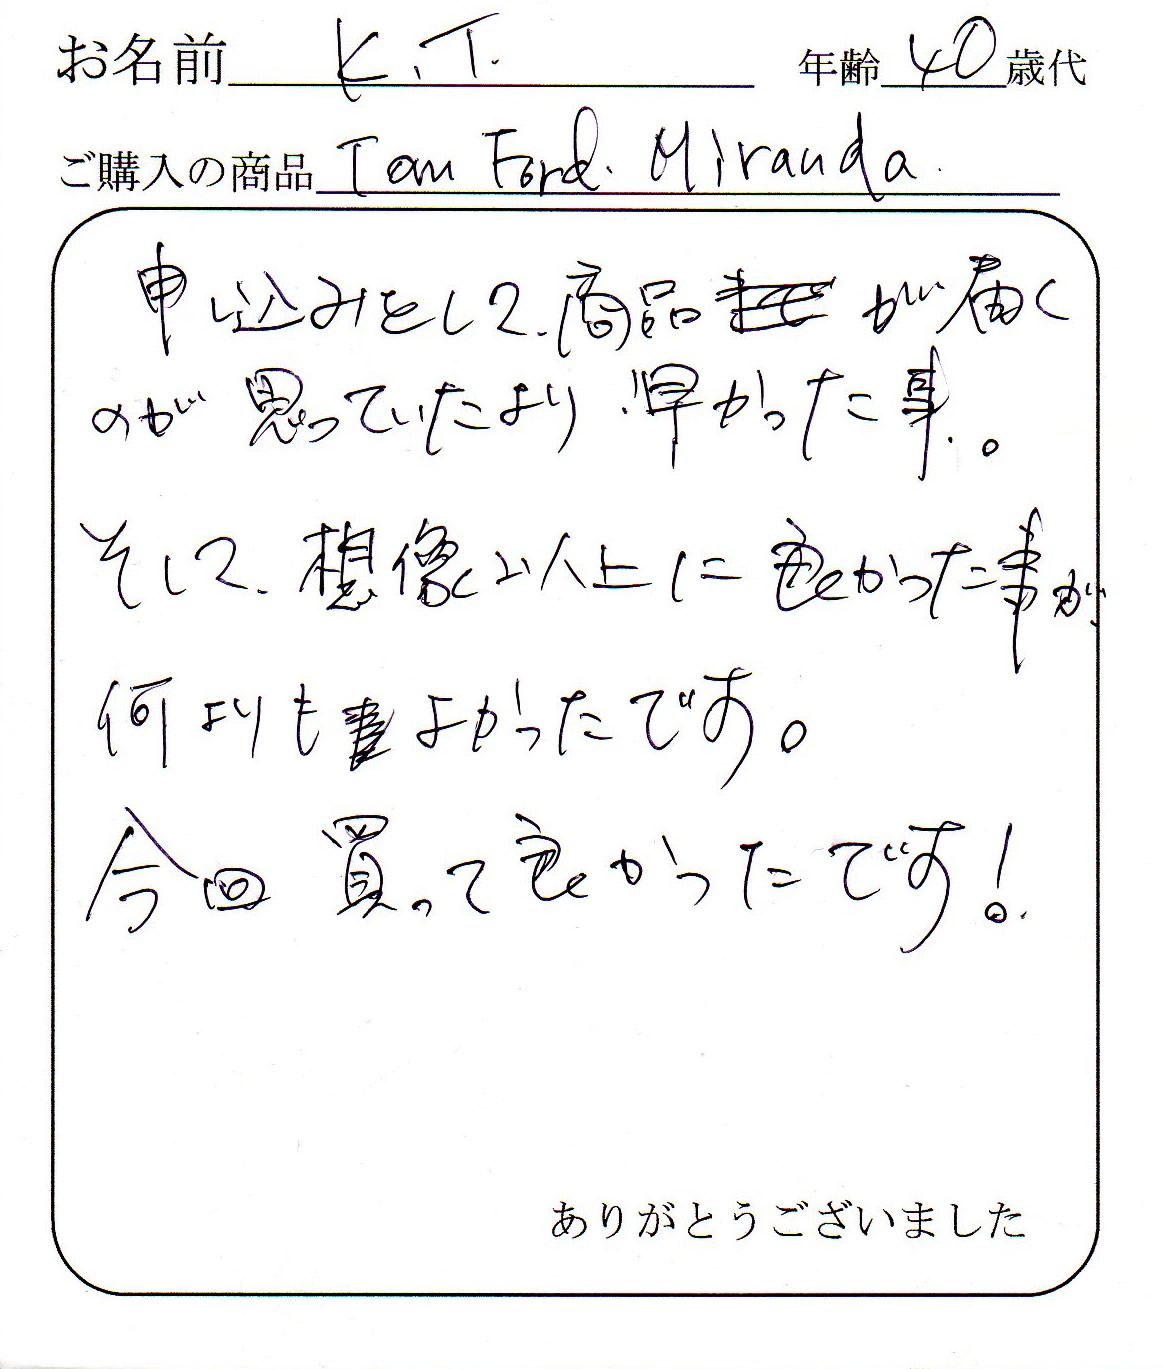 お名前 K.T. 年齢 40 歳代
ご購入の商品 Tom Ford. Miranda.
申し込みをして、商品が届く
のが思っていたより早かった事。
そして、想像以上に良かった事が
何よりもよかったです。
今回買って良かったです!
ありがとうございました